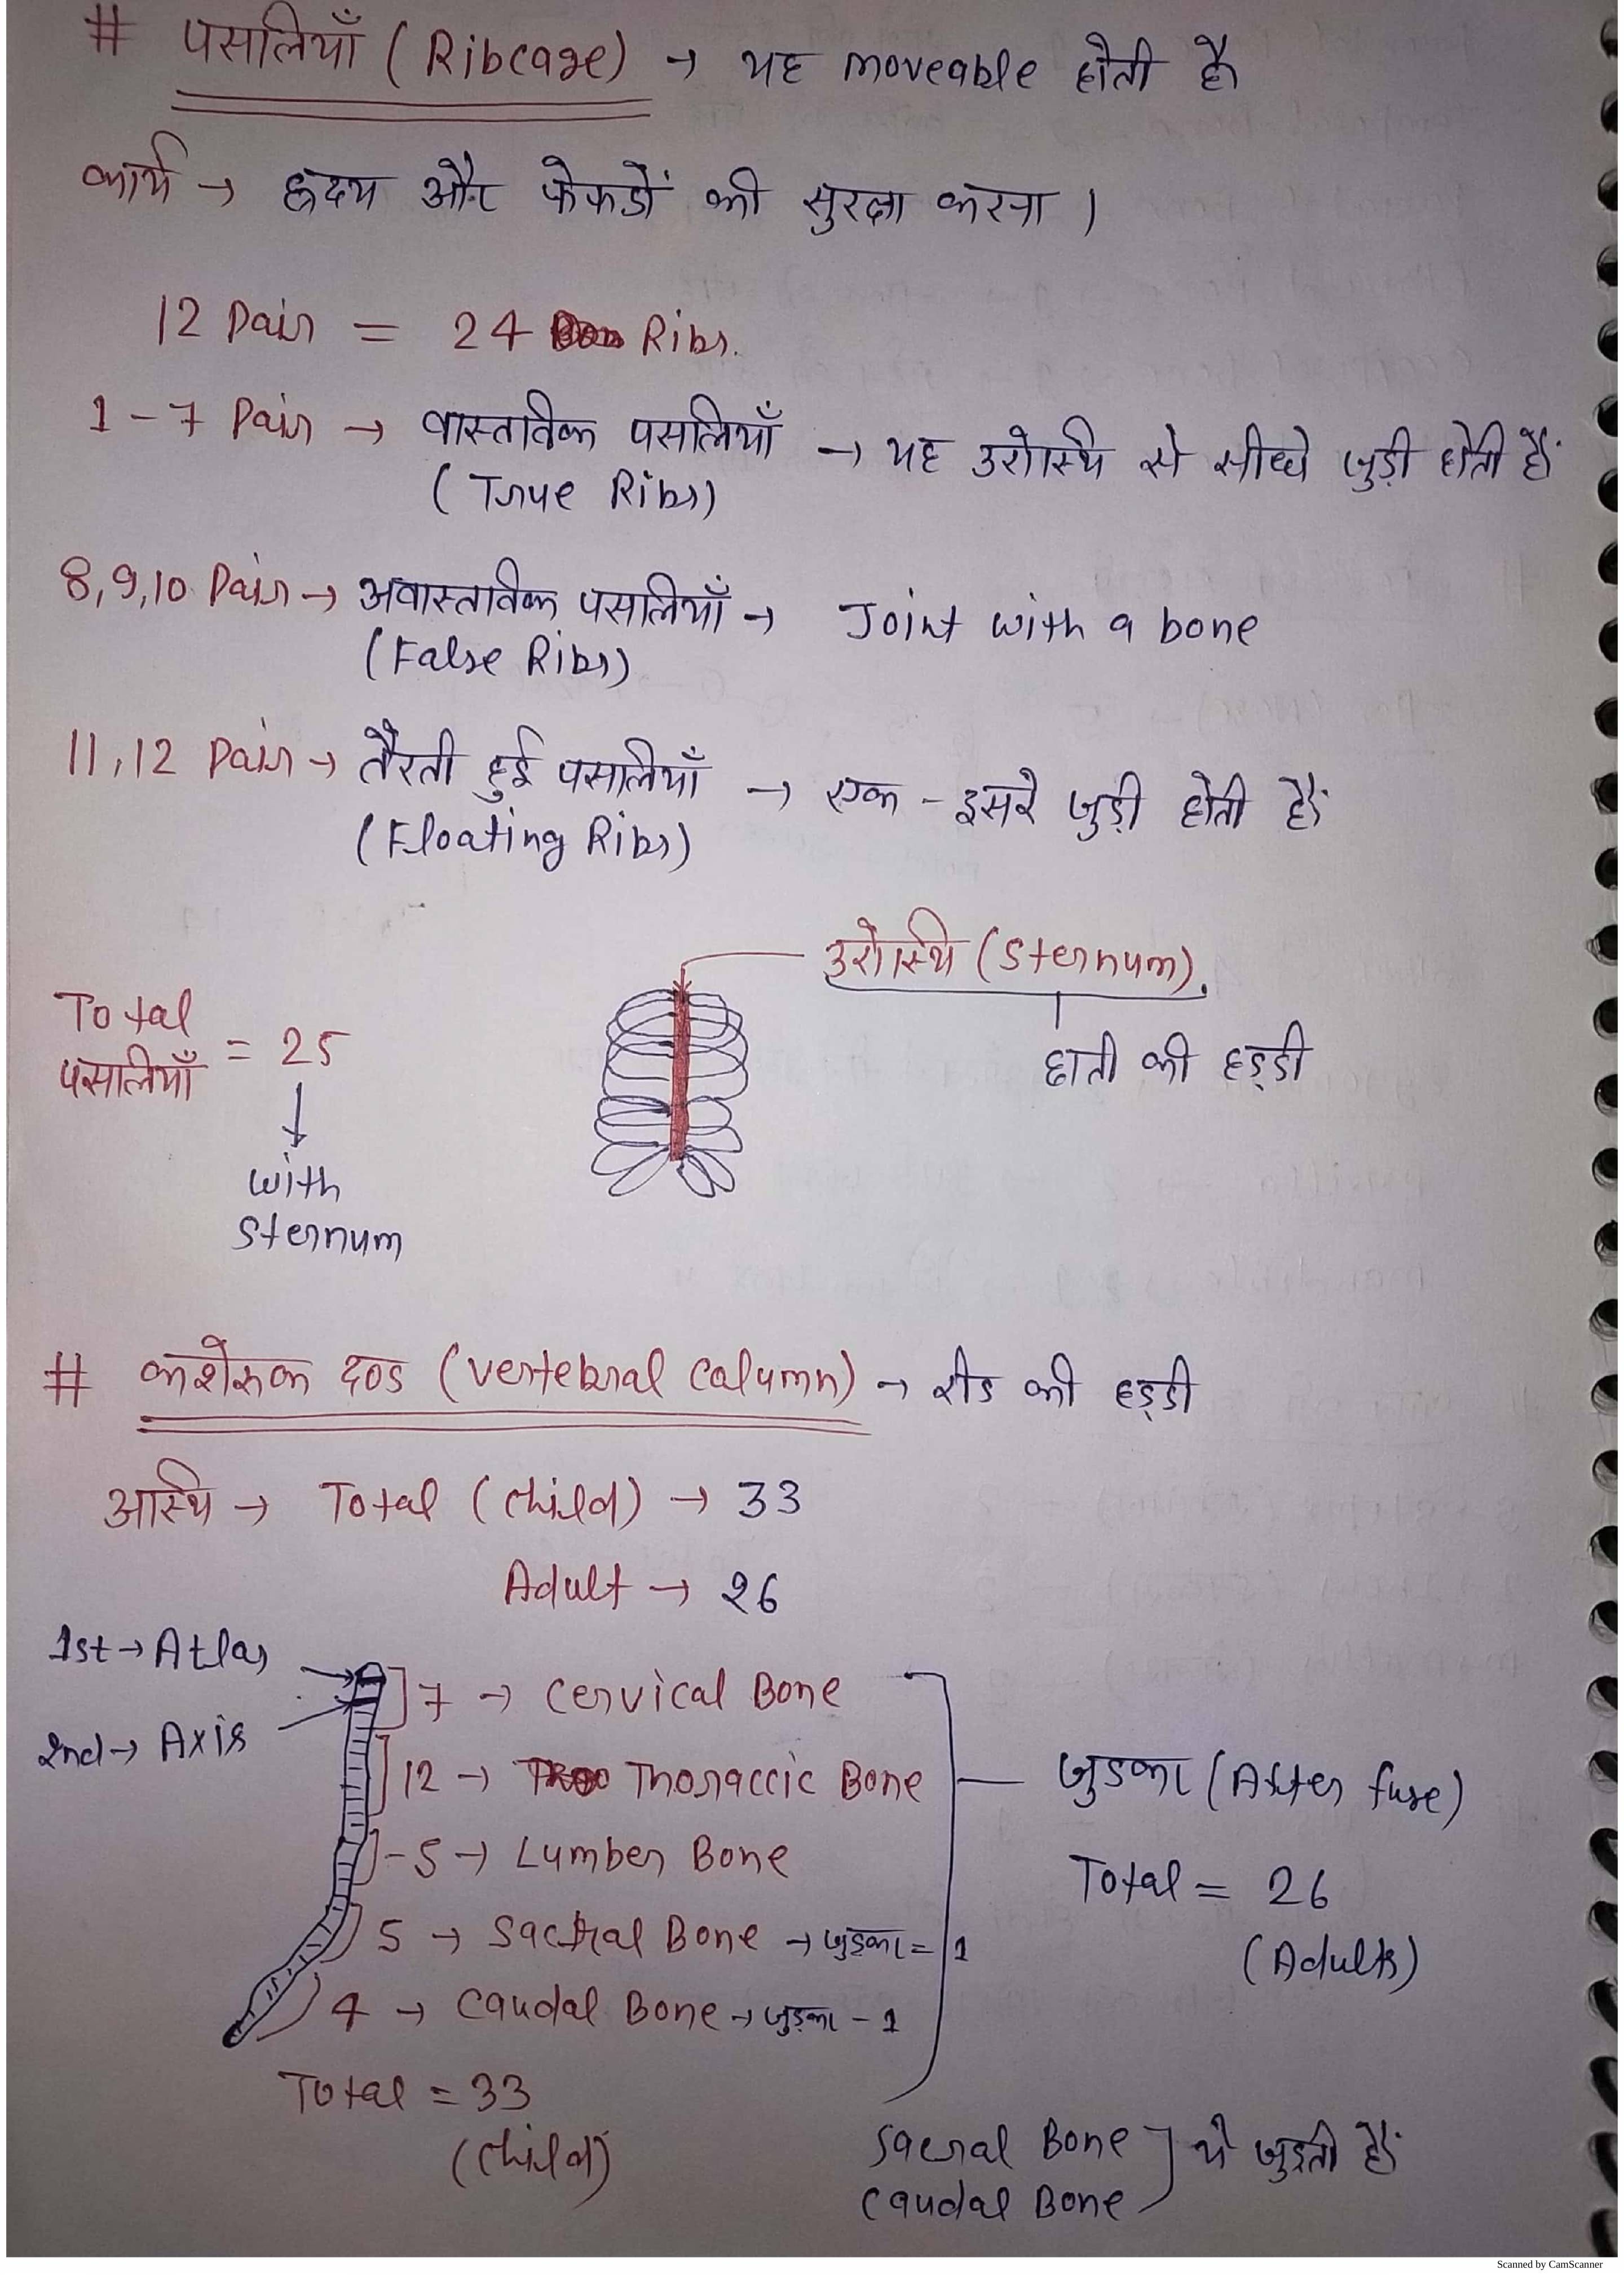 # पसलियाँ (Ribcage) → यह moveable होती है
कार्य → ह्रदय और फेफडों की सुरक्षा करना ।
12 Pair = 24 Ribs.
1 - 7 Pair → वास्तविक पसलियाँ → यह उरोस्थि से सीधे जुड़ी होती हैं
(True Ribs)
8,9,10 Pair → अवास्तविक पसलियाँ → Joint with a bone
(False Ribs)
11,12 Pair → तैरती हुई पसलियाँ → एक - दूसरे जुड़ी होती हैं
(Floating Ribs)
उरोस्थि (Sternum).
छाती की हड्डी
Total पसलियाँ = 25
↓
with
Sternum
# कशेरुक दण्ड (Vertebral Calumn) → रीड की हड्डी
अस्थि → Total (Child) → 33
Adult → 26
1st → Atlas
2nd → Axis
7 → Cervical Bone
12 → Thoraccic Bone
- 5 → Lumber Bone
5 → Sacral Bone → जुड़कर = 1
4 → Caudal Bone → जुड़कर - 1
Total = 33
(Child)
जुडकर (After fuse)
Total = 26
(Adults)
Sacral Bone
Caudal Bone ] ये जुड़ती हैं
Scanned by CamScanner